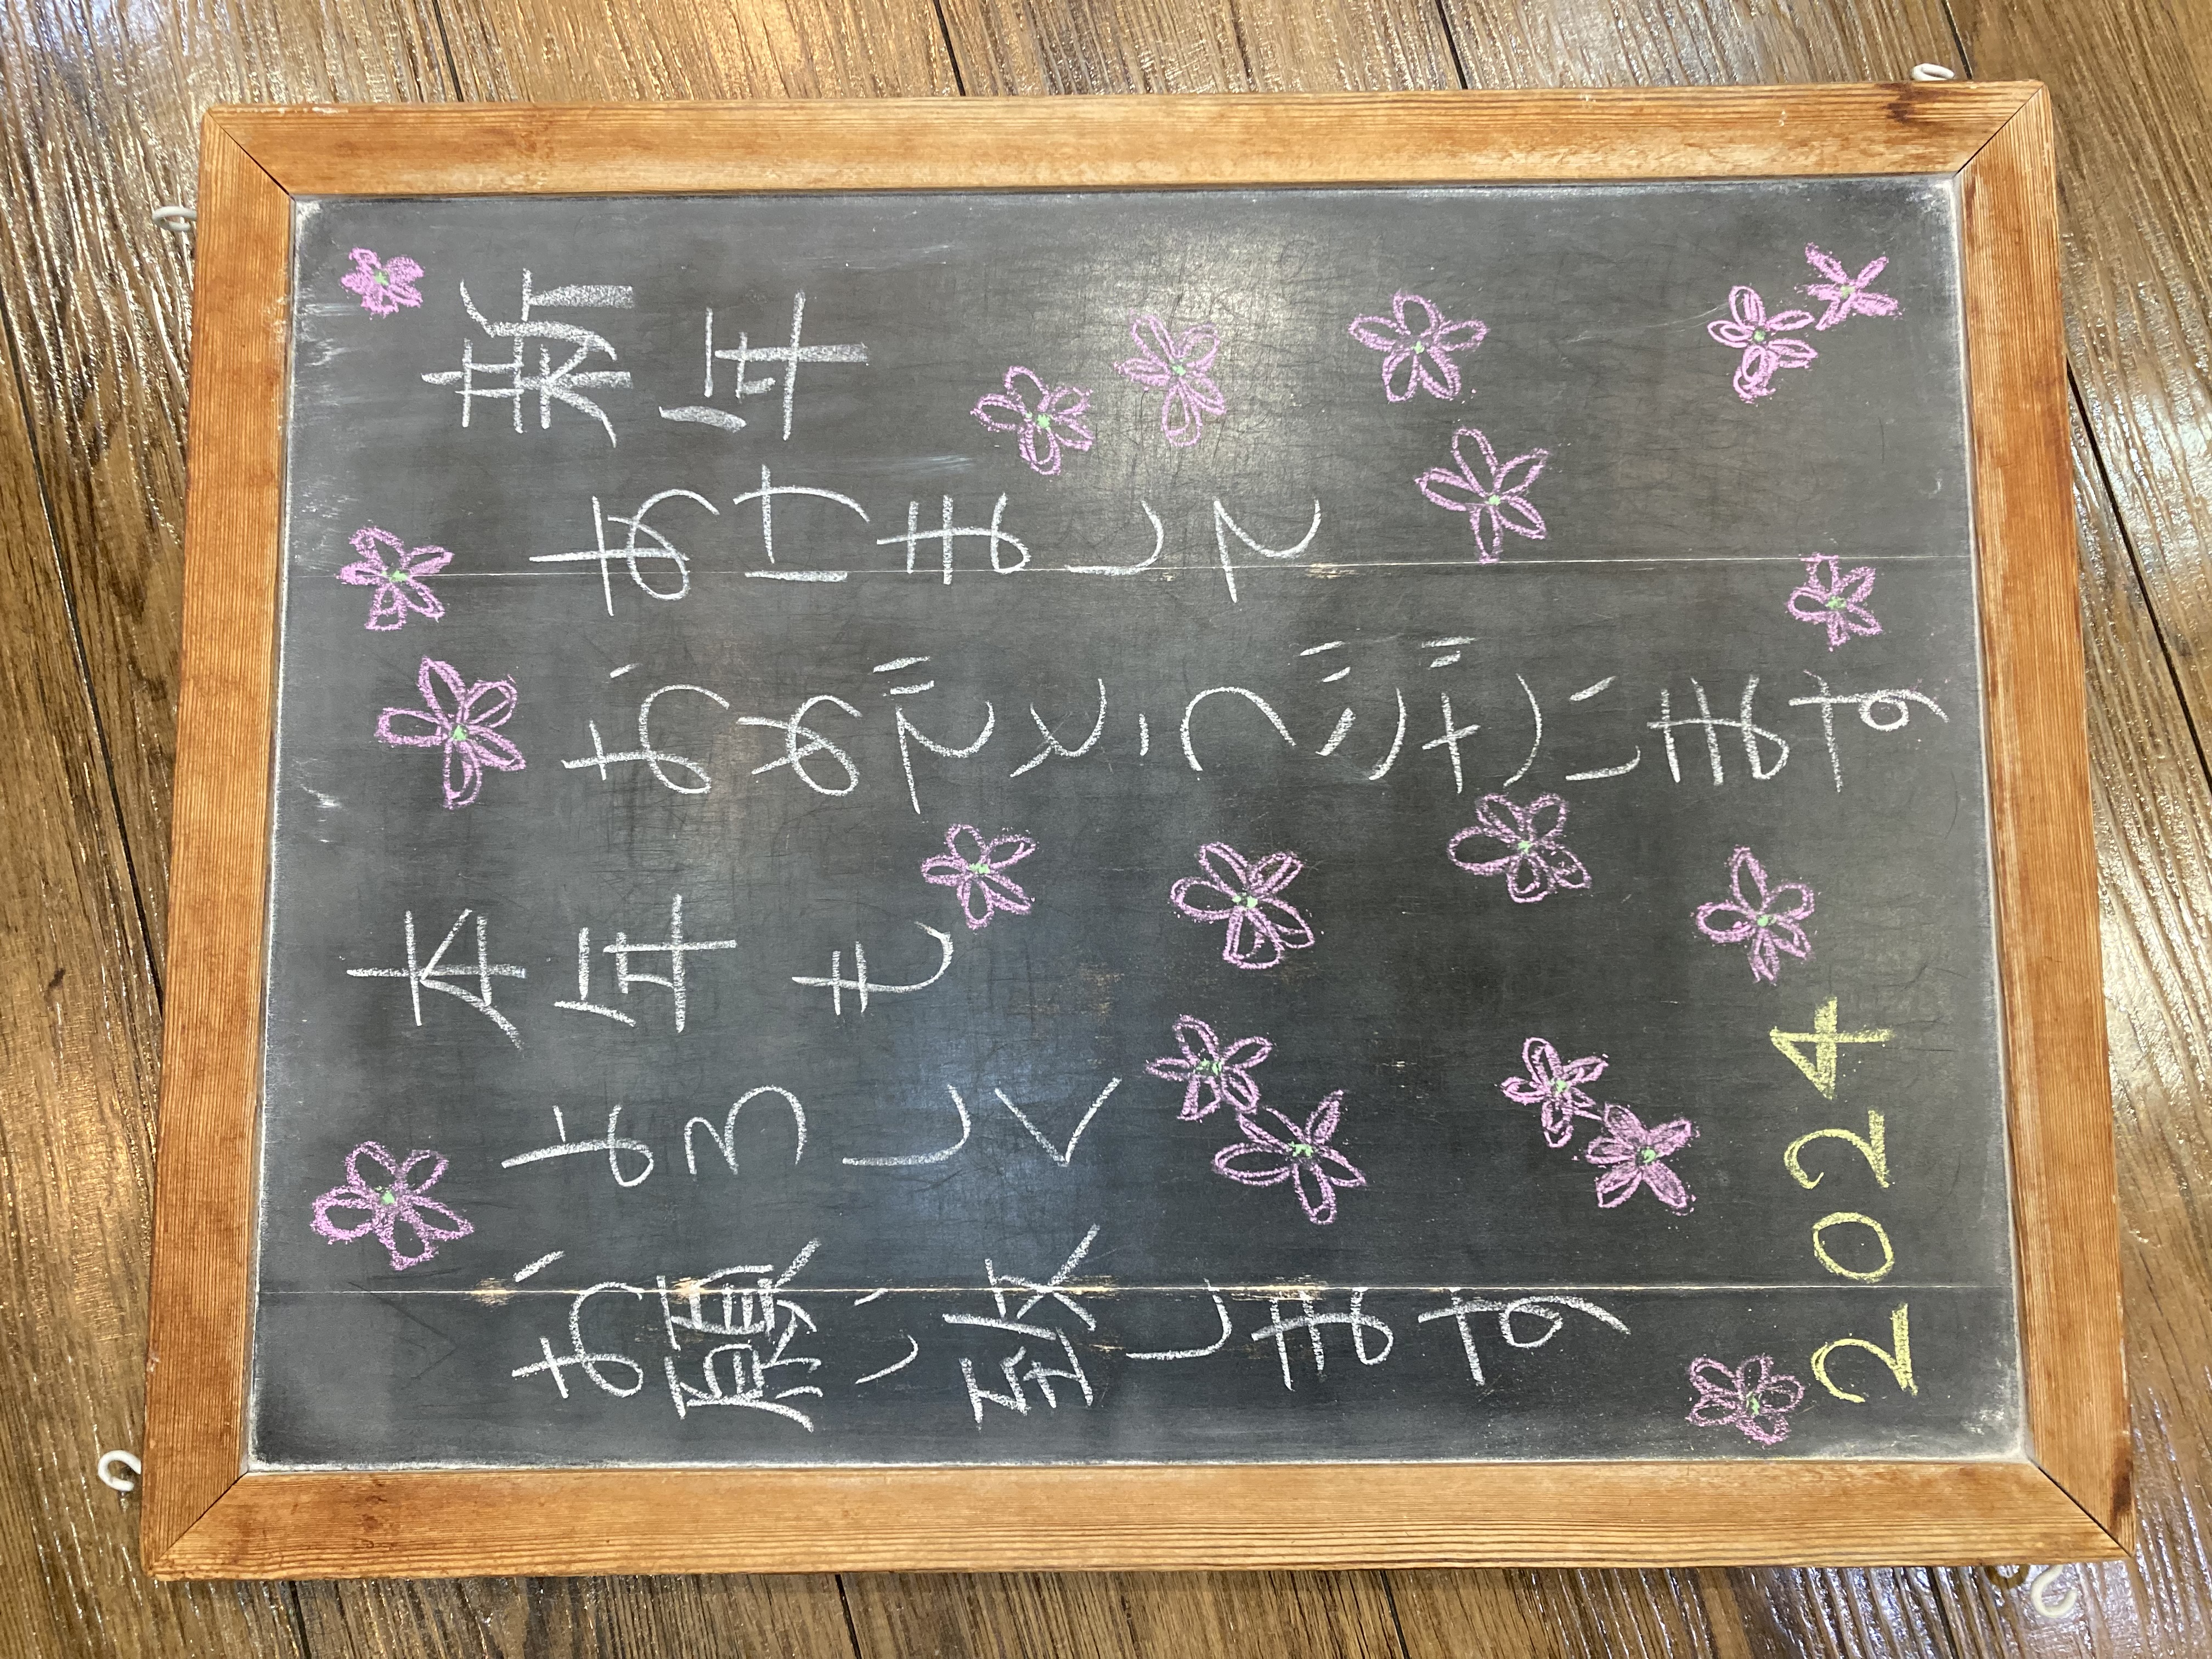 新年
あけまして
おめでとうございます
本年も
よろしく
お願い致します
2024